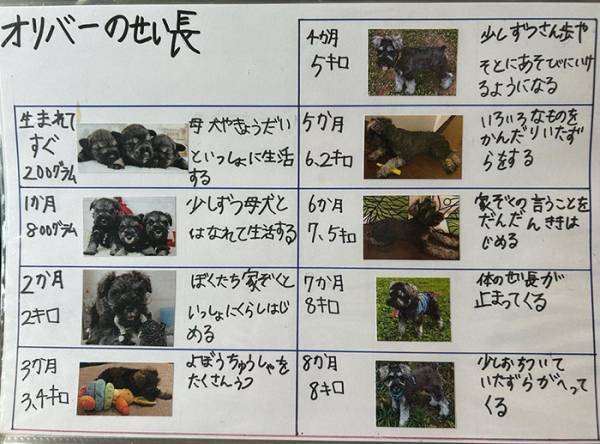 オリバーのせい長
生まれて
すぐ
200グラム
母犬やきょうだい
といっしょに生活
する
1か月
800グラム
少しずつ母犬と
はなれて生活する
2か月
2キロ
ぼくたち家ぞくと
いっしょにくらしはじ
める
3か月
3.4キロ
よぼうちゅうしゃを
たくさんうつ
4か月
5キロ
少しずつさん歩や
そとにあそびにいけ
るようになる
5か月
6.2キロ
いろいろなものを
かんだりいたず
らをする
6か月
7.5キロ
家ぞくの言うことを
だんだんききは
じめる
7か月
8キロ
体のせい長が
止まってくる
8か月
8キロ
少しおちついて
いたずらがへって
くる